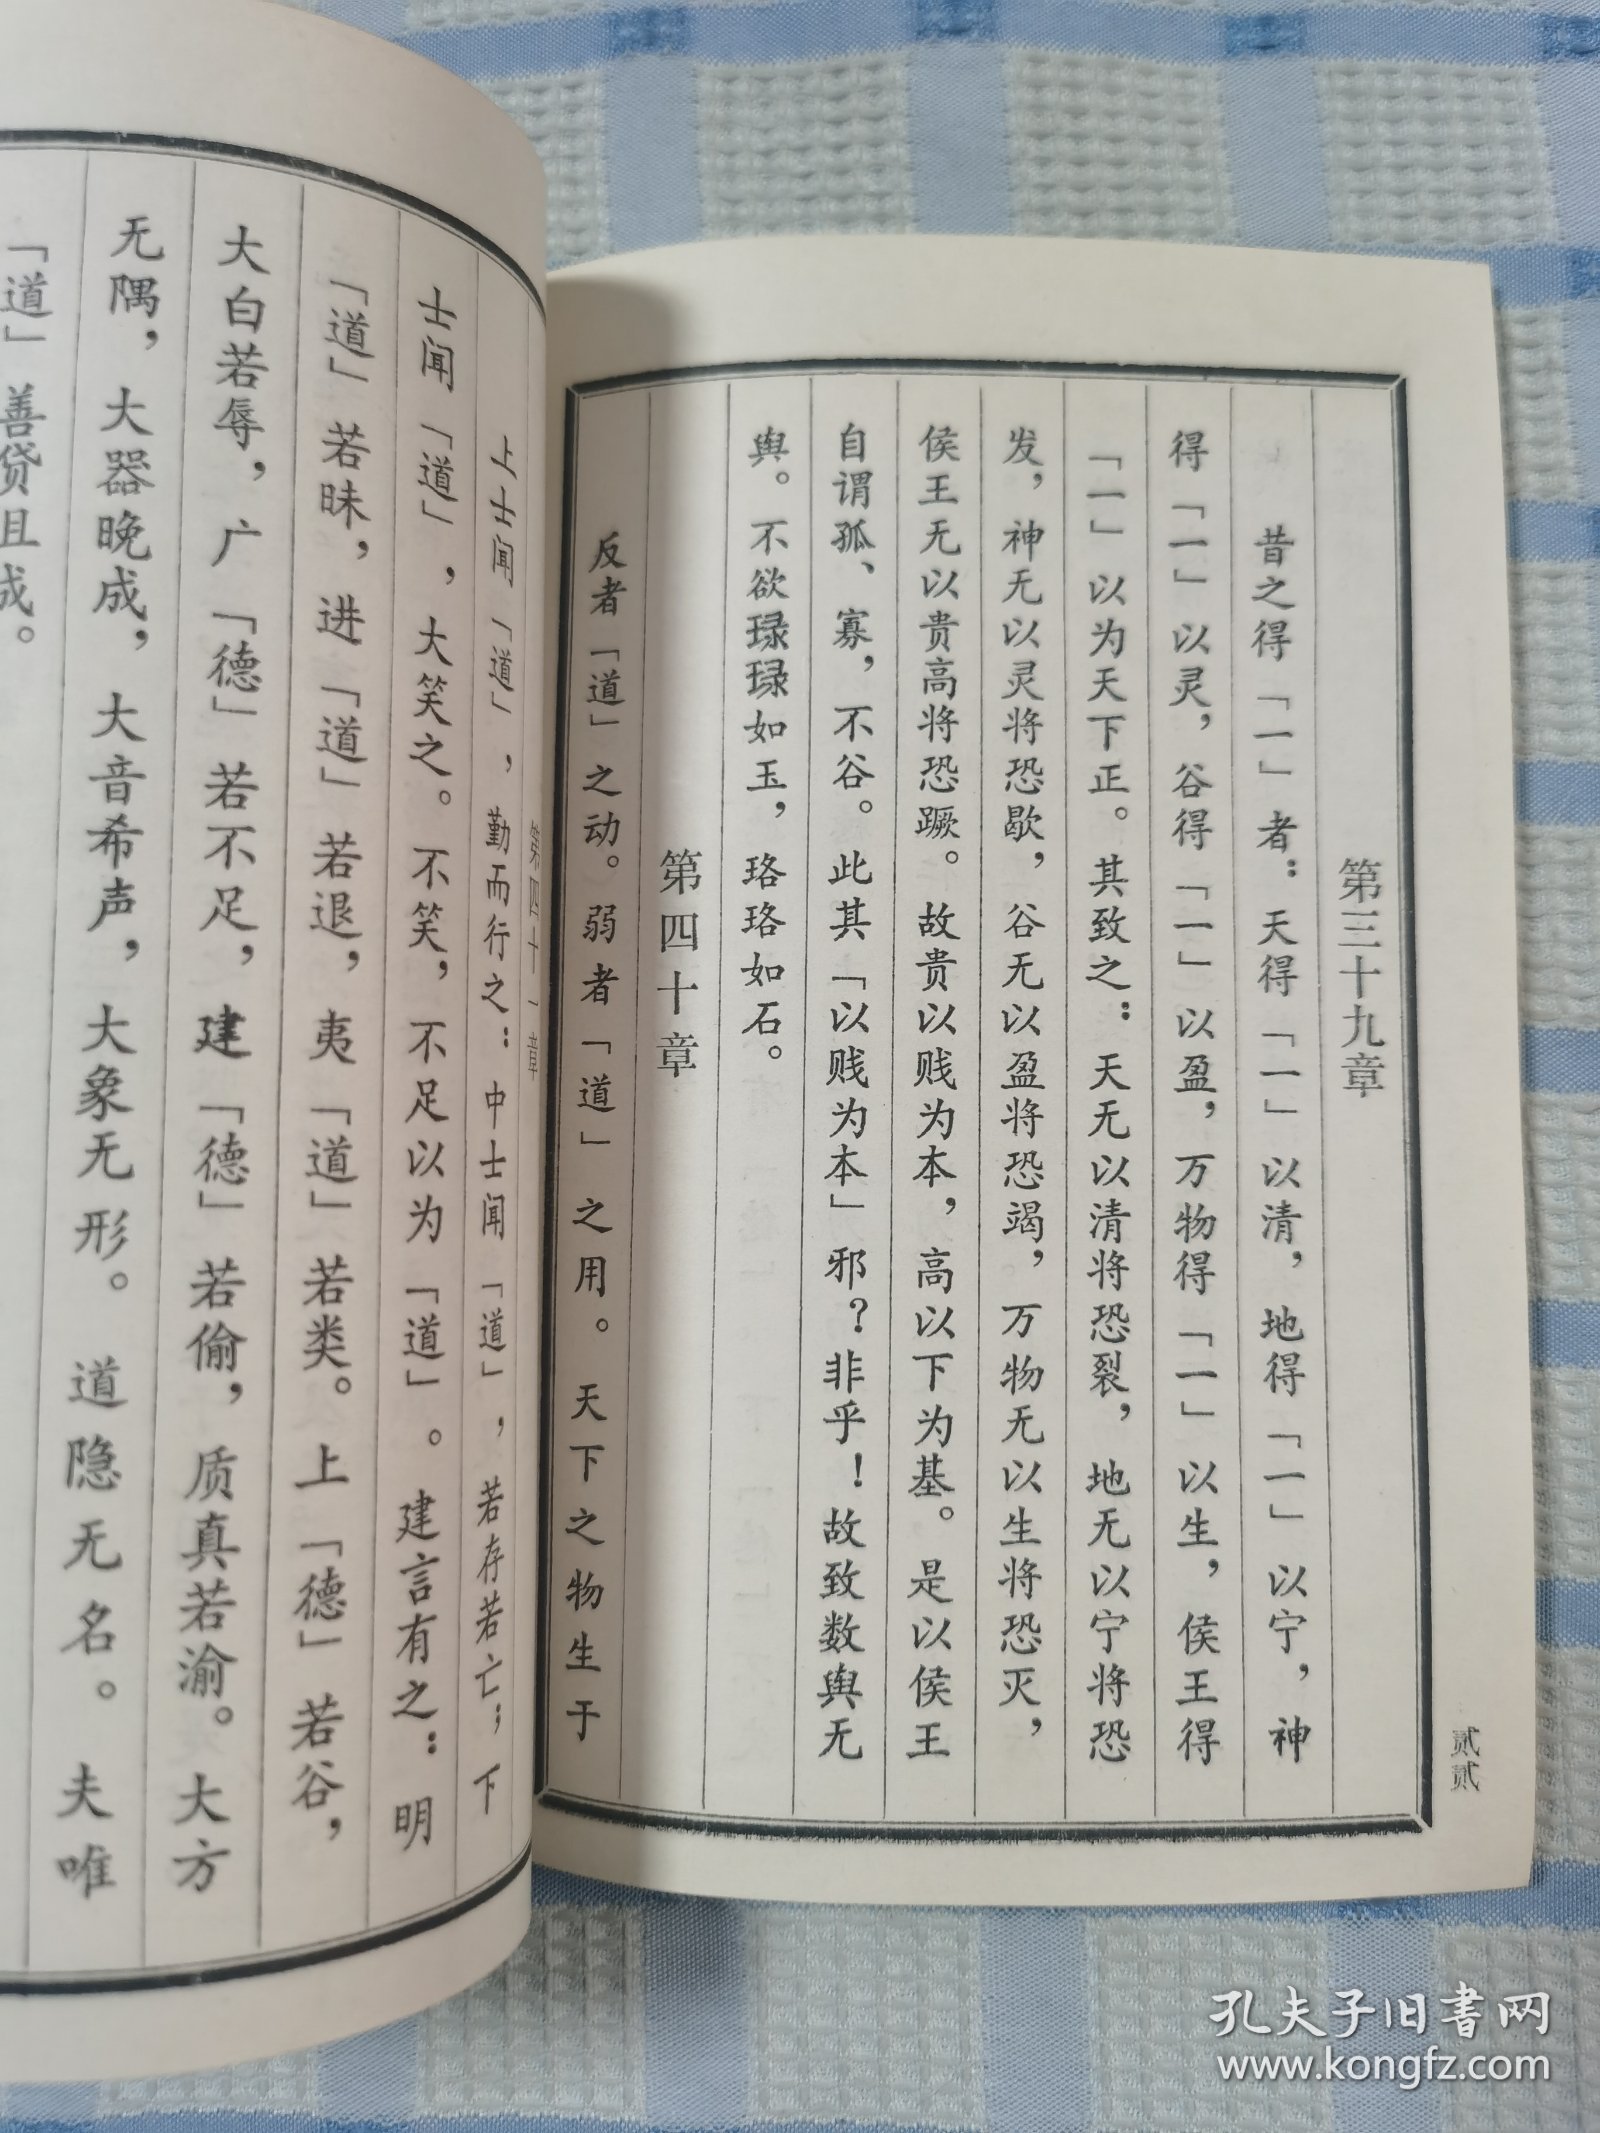 第三十九章
昔之得「一」者：天得「一」以清，地得「一」以宁，神
得「一」以灵，谷得「一」以盈，万物得「一」以生，侯王得
「一」以为天下正。其致之：天无以清将恐裂，地无以宁将恐
发，神无以灵将恐歇，谷无以盈将恐竭，万物无以生将恐灭，
侯王无以贵高将恐蹶。故贵以贱为本，高以下为基。是以侯王
自谓孤、寡，不谷。此其「以贱为本」邪？非乎！故致数舆无
舆。不欲琭琭如玉，珞珞如石。
第四十章
反者「道」之动。弱者「道」之用。天下之物生于
贰贰
第四十一章
上士闻「道」，勤而行之：中士闻「道」，若存若亡；下
士闻「道」，大笑之。不笑，不足以为「道」。建言有之：明
「道」若昧，进「道」若退，夷「道」若类。上「德」若谷，
大白若辱，广「德」若不足，建「德」若偷，质真若渝。大方
无隅，大器晚成，大音希声，大象无形。道隐无名。夫唯
「道」善贷且成。
孔夫子旧书网
www.kongfz.com